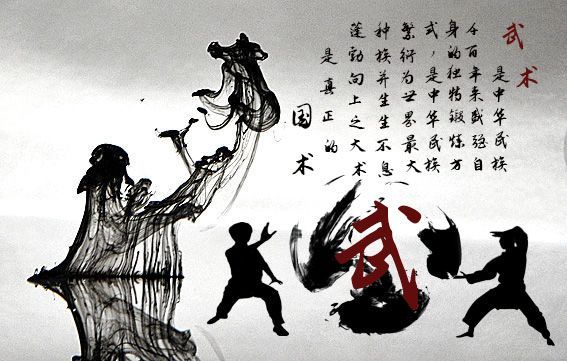 武术
是中华民族
千百年来盛强自
身的独特锻炼方
式，是中华民族
繁衍为世界最大
种族并生生不息
蓬勃向上之大术
是真正的
国术
武